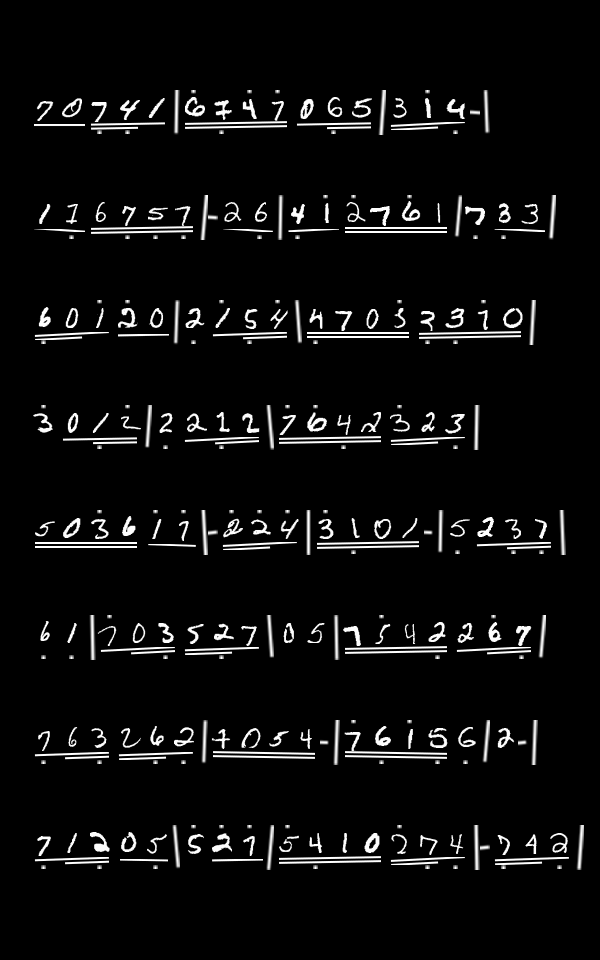 70741|6747065|314-|
116757|-26|412761|733|
60120|2154|47033310|
3012|2212|7642323|
503611|-224|3101-|5237|
61|703527|05|7542267|
763262|7054-|761566|2-|
71205|521|5410274|-742|